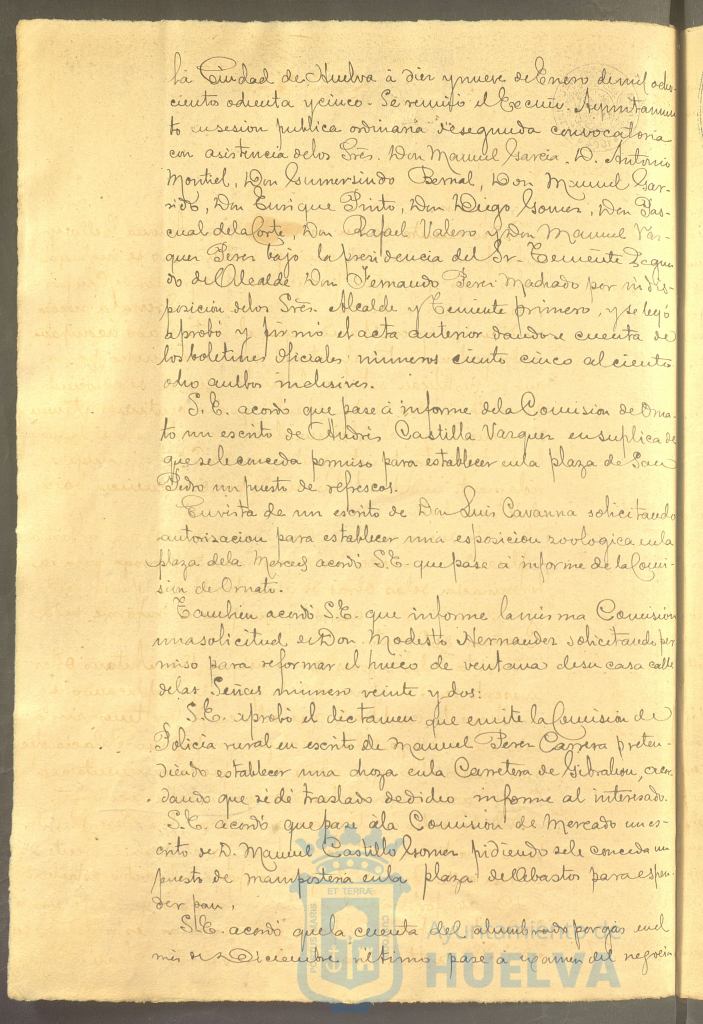 la Ciudad de Huelva à diez y nueve de Enero de mil ocho-
cientos ochenta y cinco. Se reunió el Excmo. Ayuntamien-
to en sesion publica ordinaria de segunda convocatoria
con asistencia de los Sres. Don Manuel Garcia, D. Antonio
Montiel, Don Gumersindo Bernal, Don Manuel Gar-
rido, Don Enrique Pinto, Don Diego Gomez, Don Pas-
cual de la Corte, Don Rafael Valero y Don Manuel Vaz-
quez Perez bajo la presidencia del Sr. Teniente Segun-
do de Alcalde Don Fernando Perez Machado por indis-
posicion de los Sres. Alcalde y Teniente primero, y se leyó
aprobó y firmó el acta anterior dandose cuenta de
los boletines oficiales números ciento cinco al ciento
ocho ambos inclusives.
S. E. acordó que pase à informe de la Comision de Orna-
to un escrito de Andrés Castilla Vazquez en suplica de
que se le conceda permiso para establecer en la plaza de San
Pedro un puesto de refrescos.
En vista de un escrito de Don Luis Cavanna solicitando
autorizacion para establecer una esposicion zoologica en la
plaza de la Merced acordó S. E. que pase à informe de la Comi-
sion de Ornato.
Tambien acordó S. E. que informe la misma Comision
una solicitud de Don Modesto Hernandez solicitando per-
miso para reformar el hueco de ventana de su casa calle
de las Señas número veinte y dos:
S. E. aprobó el dictamen que emite la Comision de
Policia rural en escrito de Manuel Perez Carrera preten-
diendo establecer una choza en la Carretera de Gibraleon, acor-
dando que se dé traslado de dicho informe al interesado.
S. E. acordó que pase à la Comision de Mercado un es-
crito de D. Manuel Castillo Gomez pidiendo se le conceda un
puesto de mamposteria en la plaza de Abastos para espen-
der pan.
S. E. acordó que la cuenta del alumbrado por gas en el
mes de Diciembre último pase à examen del negocia-
PORTUS MARIS
ET TERRÆ
CUSTODIA
Ayuntamiento de
HUELVA